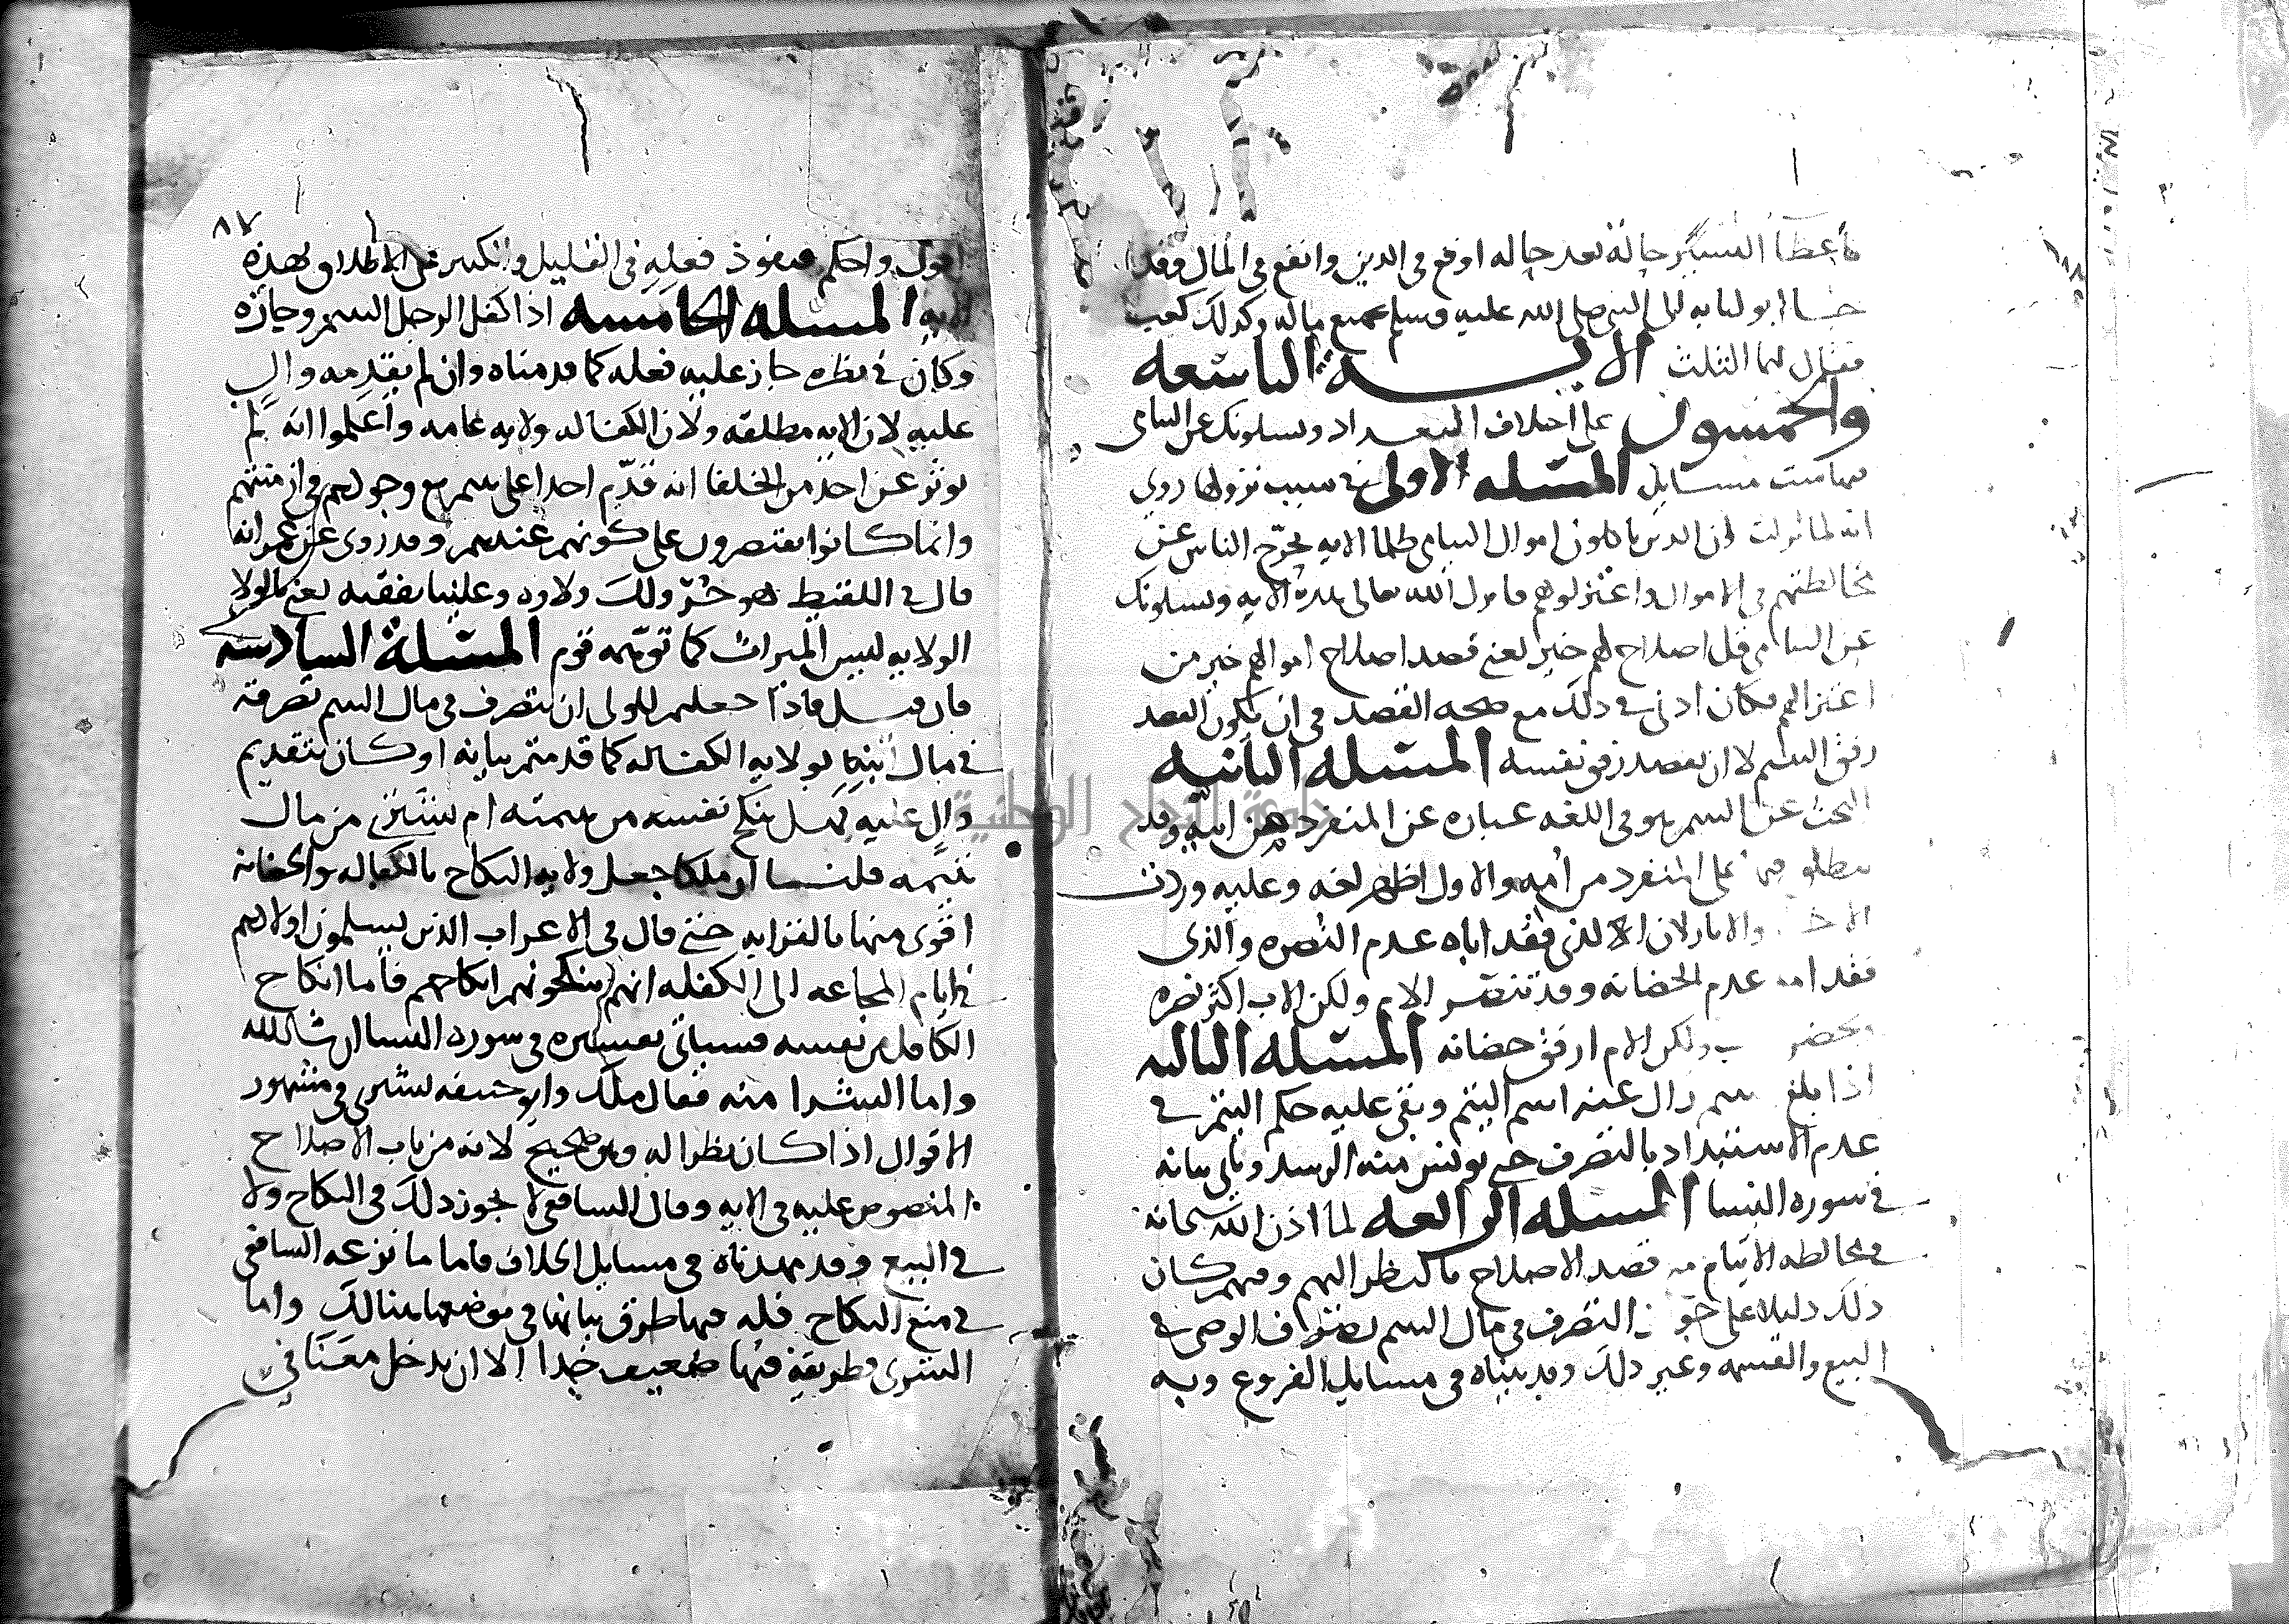 فاعطا المسكن حالة بعد حاله اوقع في الدين وانفع في المال وقد
جا ابو لبابه الى النبي صلى الله عليه وسلم بجميع ماله وكذلك كعب
فقال لهما الثلث الايـــــة التاسعه
والخمسون على اختلاف التعداد ويسلونك عن اليتامى
فيها ست مسايل المسله الاولى في سبب نزولها روي
انه لما نزلت ان الذين ياكلون اموال اليتامى ظلما الايه تحرّج الناس عن
مخالطتهم في الاموال واعتزلوهم فانزل الله تعالى هذه الايه ويسلونك
عن اليتامى قل اصلاح لهم خير يعني قصد اصلاح اموالهم خير من
اعتزالهم فكان اذنى في ذلك مع صحه القصد في ان يكون القصد
رفق اليتيم لا ان يقصد رفق نفسه المسله الثانيه
البحث عن اليتيم هو في اللغه عباره عن المنفرد من ابيه وقد
يطلق على المنفرد من امه والاول اظهر لغه وعليه وردت
والاثار لان الذي فقد اباه عدم النصره والذي
فقد امه عدم الحضانه وقد تنصر الام ولكن الاب اكثر نصره
ويحضن ولكن الام ارفق حضانه المسله الثالثه
اذا بلغ زال عنه اسم اليتم وبقي عليه حكم اليتم في
عدم الاستبداد بالتصرف حتى يونس منه الرشد وياتي بيانه
في سوره النسا المسله الرابعه لما اذن الله سبحانه
في مخالطه الايتام مع قصد الاصلاح بالنظر اليهم وفيهم كان
ذلك دليلا على جواز التصرف في مال اليتيم تصرف الوصي في
البيع والقسمه وغير ذلك وقد بيناه في مسايل الفروع وبه
٨٧
اقول واحكم فينفوذ فعله في القليل والكثير على الاطلاق لهذه
الايه المسله الخامسه اذا كفل الرجل اليتيم وحازه
وكان في نظره جاز عليه فعله كما قدمناه وان لم يقدمه والٍ
عليه لان الايه مطلقه ولان الكفاله ولايه عامه واعلموا انه لم
يوثر عن احد من الخلفا انه قدّم احدا على يتيم مع وجودهم في ازمنتهم
وانما كانوا يقتصرون على كونهم عندهم وقد روى عن عمر انه
قال في اللقيط هو حُرّ ولك ولاوه وعلينا نفقته يعني بالولا
الولايه ليس الميراث كما توهمه قوم المسلة السادسه
فان قيل فاذا جعلتم للولي ان يتصرف في مال اليتيم تصرفه
في مال ابنه بولايه الكفاله كما قدمتم بيانه او كان بتقديم
والٍ عليه فهل ينكح نفسه من يتيمته ام يشتري من مال
يتيمه قلنا ان ملكا جعل ولايه النكاح بالكفاله والحضانه
اقوى منها بالقرابه حتى قال في الاعراب الذين يسلمون اولادهم
في ايام المجاعه الى الكفله انهم ينكحونهم انكاحهم فاما انكاح
الكافل من نفسه فسياتي تفسيره في سوره النسا ان شا الله
واما الشرا منه فقال ملك وابو حنيفه يشتري في مشهور
الاقوال اذا كان نظرا له وهو صحيح لانه من باب الاصلاح
المنصوص عليه في الايه وقال الشافعي لا يجوز ذلك في النكاح ولا
في البيع وقد مهدناه في مسايل الخلاف فاما ما نزعه الشافعي
في منع النكاح فله فيها طرق بيانها في موضعها هنالك واما
الشرى فطريقه فيها ضعيف جدا الا ان يدخل معنا في